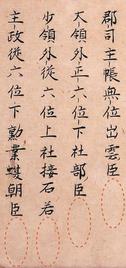 郡司主帳無位出雲臣
大領外正六位下社部臣
少領外從六位上社接石君
主政從六位下勲業蝮朝臣